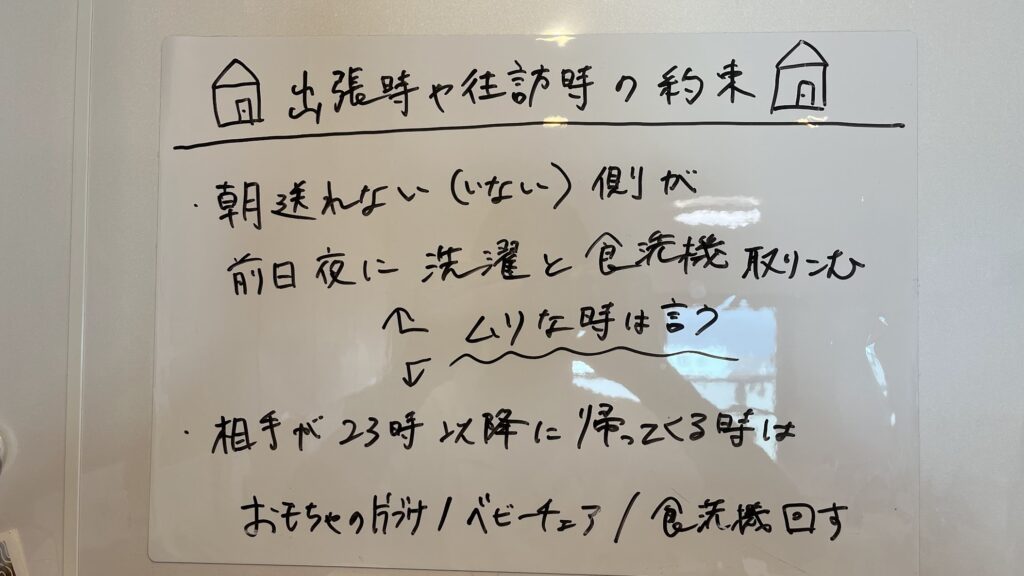 出張時や往訪時の約束
・朝送れない（いない）側が
前日夜に洗濯と食洗機取りこむ
ムリな時は言う
・相手が23時以降に帰ってくる時は
おもちゃの片づけ/ベビーチェア/食洗機回す